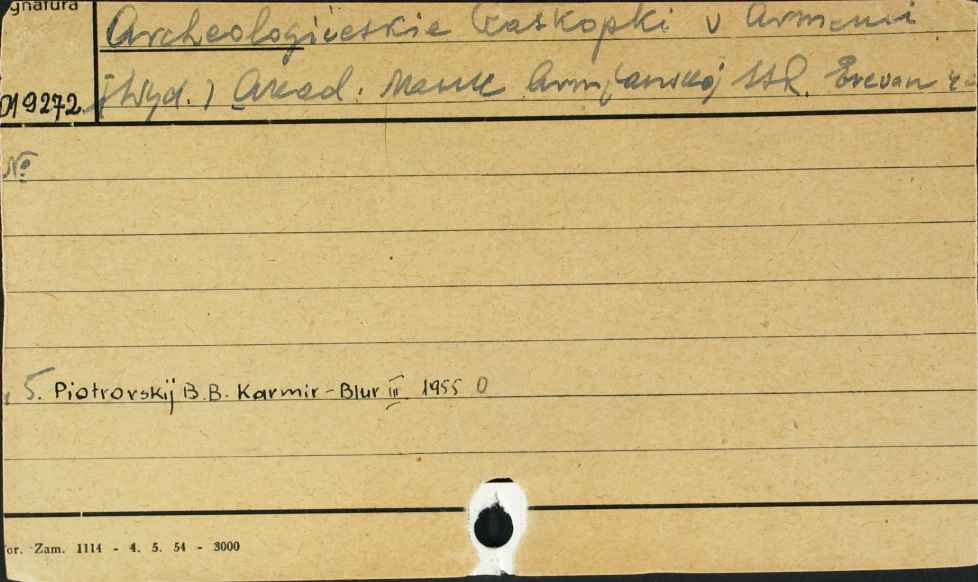 ygnatura
Archeologičeskie Raskopki v Armenii
019272. [Wyd.] Akad. Nauk Armjanskoj SSR. Erevan
No
5. Piotrovskij B.B. Karmir-Blur III 1955 0
or. Zam. 1114 - 4. 5. 54 - 3000